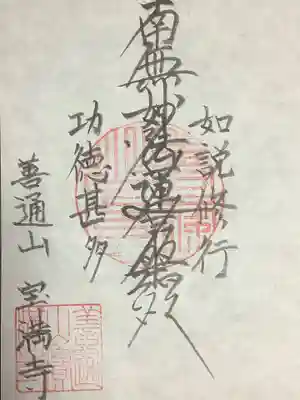 如説修行
南無妙法蓮華経
功徳甚多
善通山 宝満寺